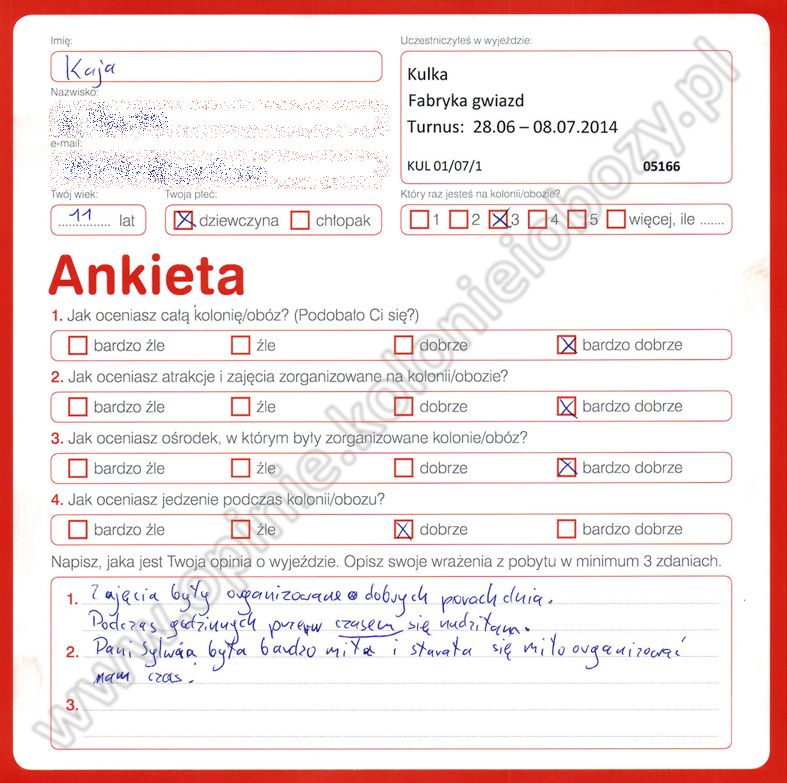 Imię:
Kaja
Uczestniczyłeś w wyjeździe:
Kulka
Fabryka gwiazd
Turnus: 28.06 – 08.07.2014
KUL 01/07/1 05166
Nazwisko:
e-mail:
Twój wiek: Twoja płeć:
11 lat dziewczyna chłopak
Który raz jesteś na kolonii/obozie?
1 2 3 4 5 więcej, ile .......
Ankieta
1. Jak oceniasz całą kolonię/obóz? (Podobało Ci się?)
bardzo źle źle dobrze bardzo dobrze
2. Jak oceniasz atrakcje i zajęcia zorganizowane na kolonii/obozie?
bardzo źle źle dobrze bardzo dobrze
3. Jak oceniasz ośrodek, w którym były zorganizowane kolonie/obóz?
bardzo źle źle dobrze bardzo dobrze
4. Jak oceniasz jedzenie podczas kolonii/obozu?
bardzo źle źle dobrze bardzo dobrze
Napisz, jaka jest Twoja opinia o wyjeździe. Opisz swoje wrażenia z pobytu w minimum 3 zdaniach.
1. Zajęcia były organizowane o dobrych porach dnia.
Podczas godzinnych przerw czasem się nudziłam.
2. Pani Sylwia była bardzo miła i starała się miło organizować
nam czas.
3.
www.opinie.kolonieiobozy.pl